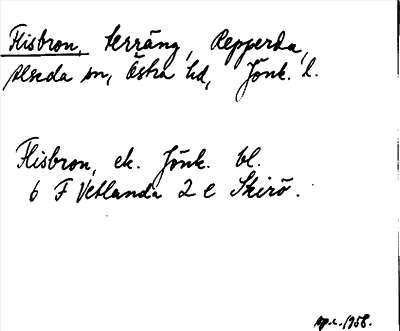 Flisbron, terräng, Repperda,
Alseda sn, Östra hd, Jönk. l.
Flisbron, ek. Jönk. bl.
6 F Vetlanda 2 e Skirö.
1958.